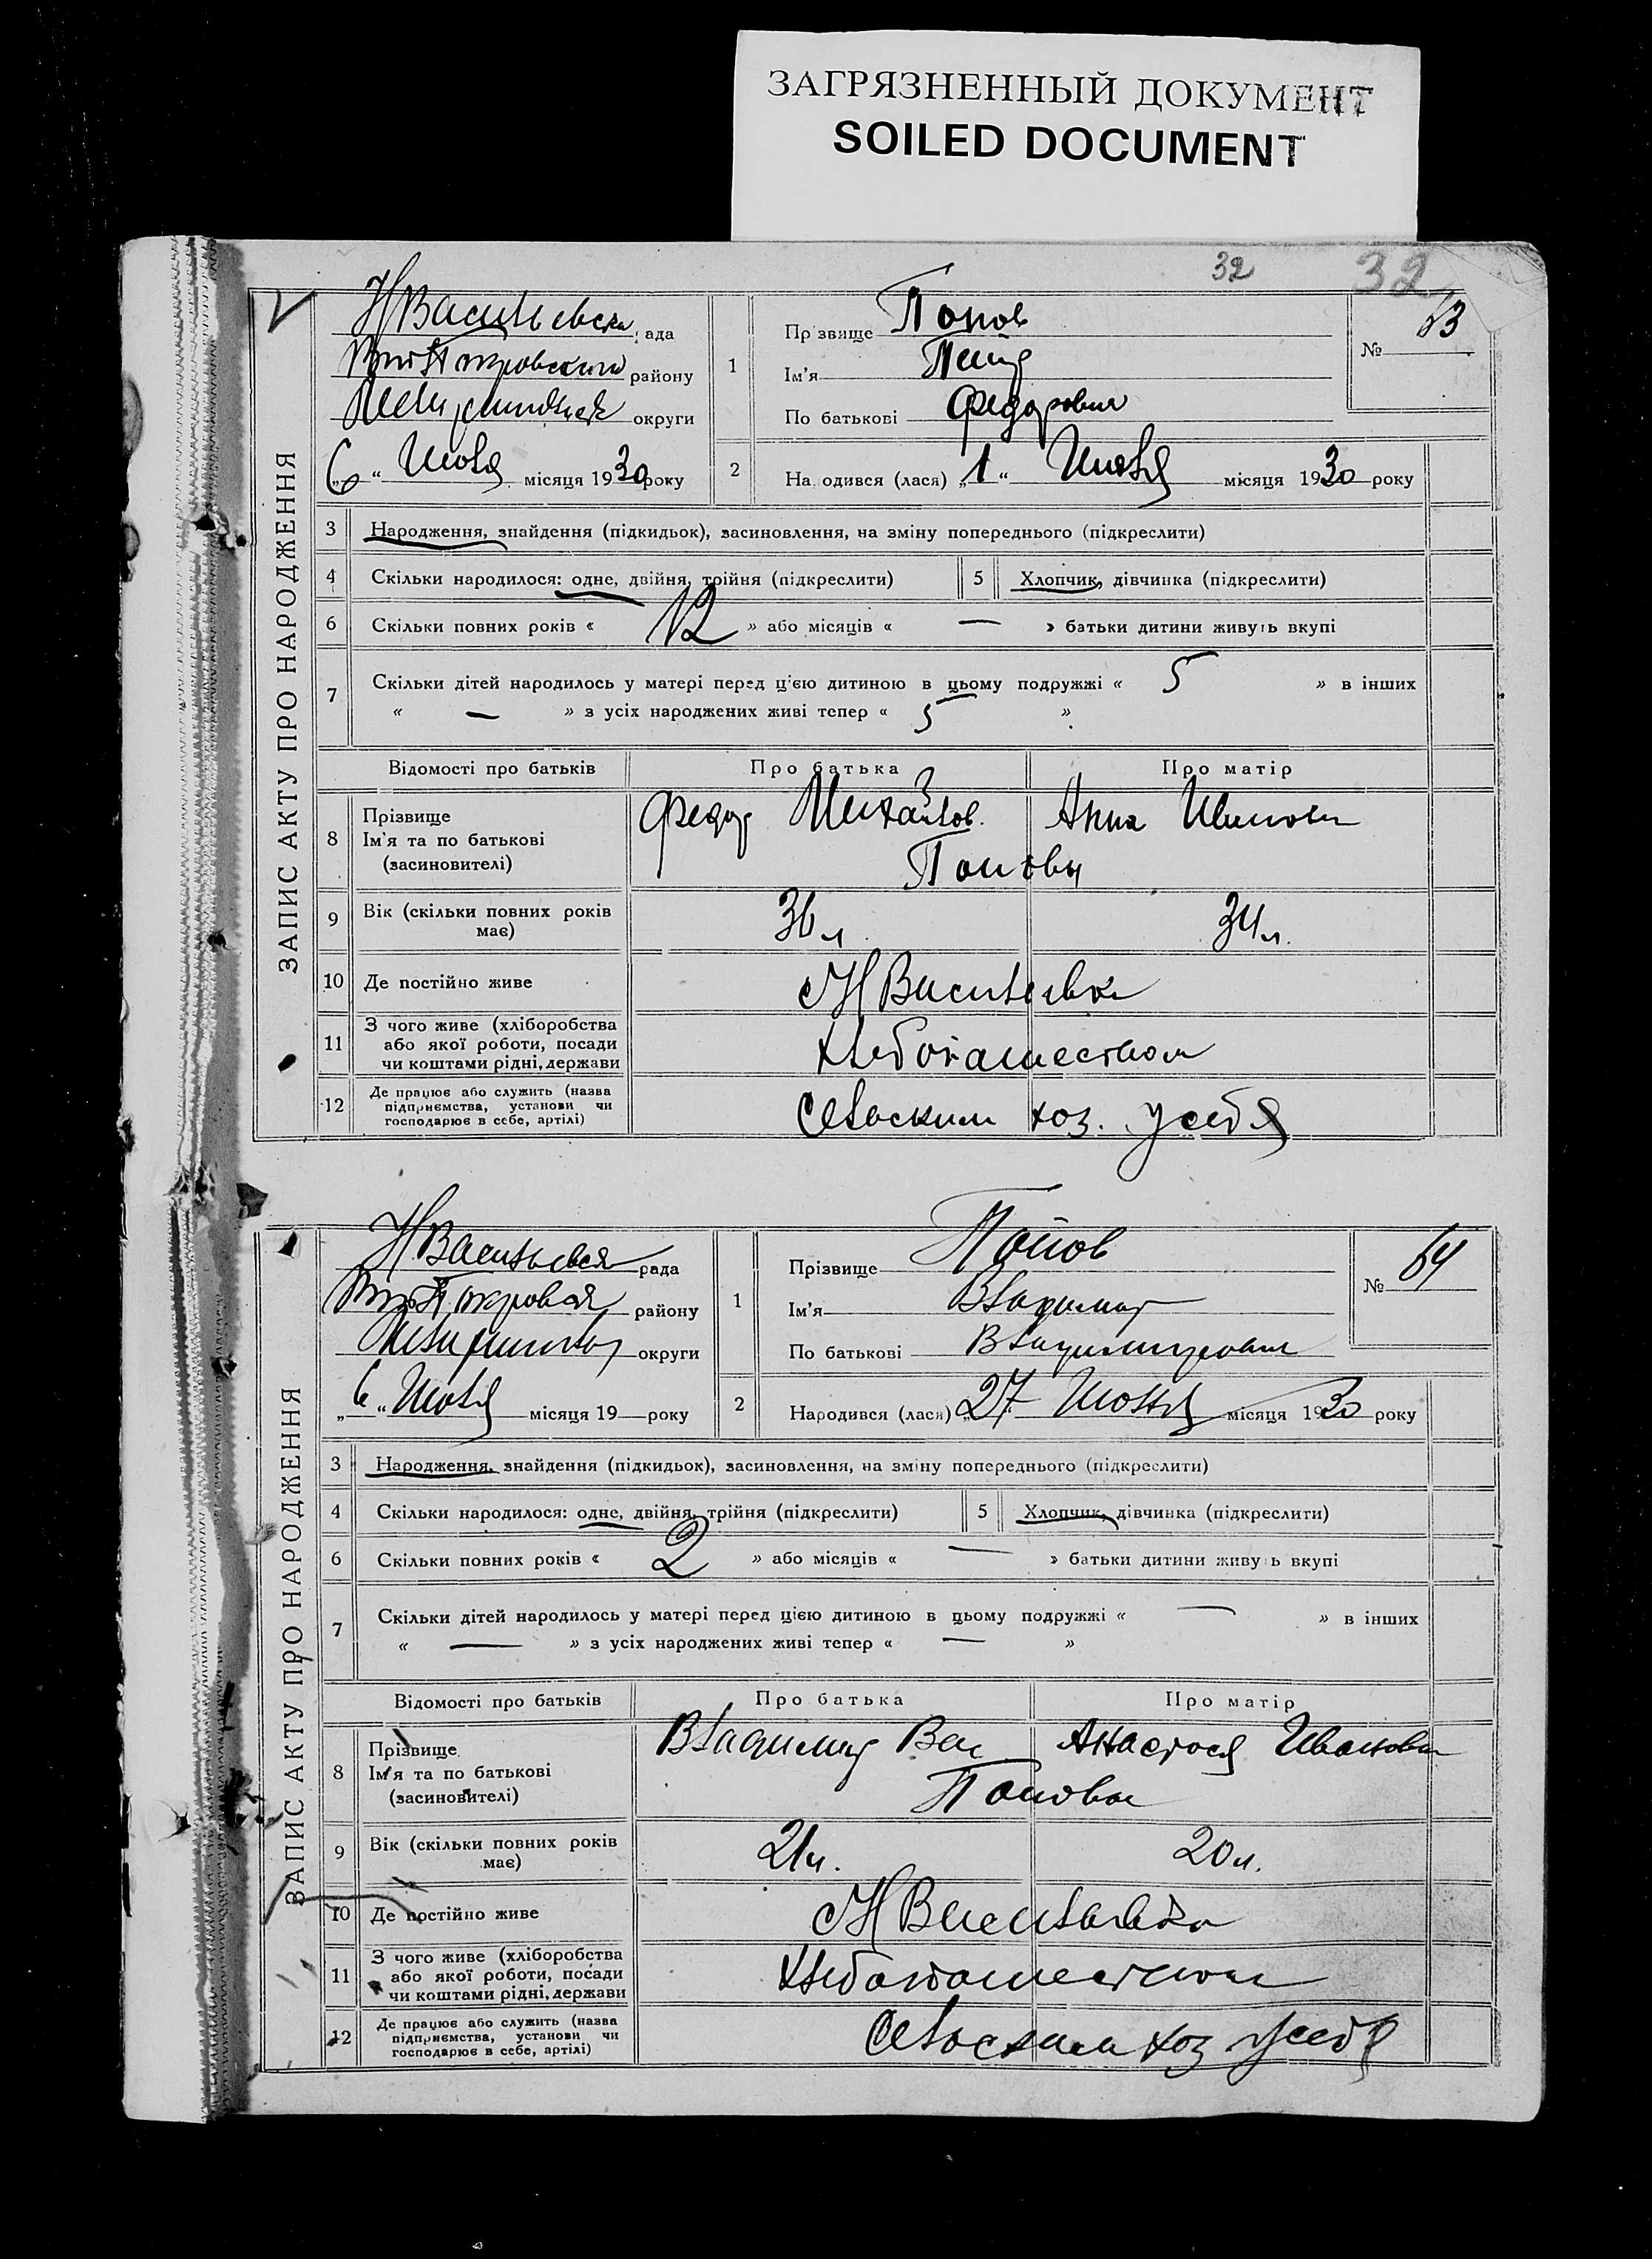 ЗАГРЯЗНЕННЫЙ ДОКУМЕНТ
SOILED DOCUMENT
32 32
ЗАПИС АКТУ ПРО НАРОДЖЕННЯ
НВасильевска рада
району
округи
„6“ Июля місяця 1930 року
1
Прізвище Попов
Ім'я
По батькові Федорович
№ 63
2
Народився (лася) „1“ Июля місяця 1930 року
3 Народження, знайдення (підкидьок), засиновлення, на зміну попереднього (підкреслити)
4 Скільки народилося: одне, двійня, трійня (підкреслити) 5 Хлопчик, дівчинка (підкреслити)
6 Скільки повних років « 12 » або місяців « — » батьки дитини живуть вкупі
7 Скільки дітей народилось у матері перед цією дитиною в цьому подружжі « 5 » в інших
« — » з усіх народжених живі тепер « 5 »
Відомості про батьків Про батька Про матір
8 Прізвище
Ім'я та по батькові
(засиновителі)
Федор Михайлов. Анна Иванова
Поповы
9 Вік (скільки повних років має) 36 л 34 л.
10 Де постійно живе НВасильевка
11 З чого живе (хліборобства
або якої роботи, посади
чи коштами рідні, держави
хлебопашеством
12 Де працює або служить (назва
підприємства, установи чи
господарює в себе, артілі)
Сельским хоз. у себя
ЗАПИС АКТУ ПРО НАРОДЖЕННЯ
НВасильевск рада
району
округи
„6“ Июля місяця 19 — року
1
Прізвище Попов
Ім'я Владимир
По батькові Владимирович
№ 64
2
Народився (лася) „27 Июня місяця 1930 року
3 Народження, знайдення (підкидьок), засиновлення, на зміну попереднього (підкреслити)
4 Скільки народилося: одне, двійня, трійня (підкреслити) 5 Хлопчик, дівчинка (підкреслити)
6 Скільки повних років « 2 » або місяців « — » батьки дитини живуть вкупі
7 Скільки дітей народилось у матері перед цією дитиною в цьому подружжі « — » в інших
« — » з усіх народжених живі тепер « — »
Відомості про батьків Про батька Про матір
8 Прізвище
Ім'я та по батькові
(засиновителі)
Владимир Вас Анастася Иванова
Поповы
9 Вік (скільки повних років має) 21 л. 20 л.
10 Де постійно живе НВасильевка
11 З чого живе (хліборобства
або якої роботи, посади
чи коштами рідні, держави
хлебопашеством
12 Де працює або служить (назва
підприємства, установи чи
господарює в себе, артілі)
Сельским хоз у себя